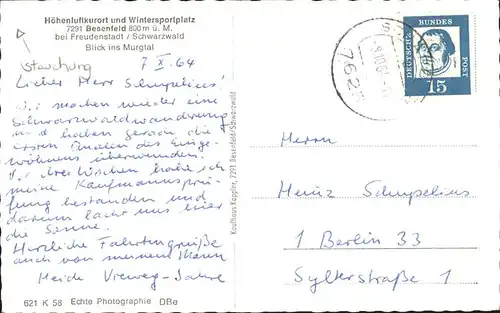 Höhenluftkurort und Wintersportplatz
7291 Besenfeld 800 m ü. M.
bei Freudenstadt / Schwarzwald
Blick ins Murgtal
7 X. 64
Lieber Herr Schupelius!
Wir machen wieder eine
Schwarzwaldwanderung
und haben gerade die
ersten Qualen des Einge-
wöhnens überwunden.
Inzwischen habe ich
meine Kaufmannsprü-
fung bestanden und
darum lacht uns hier
die Sonne.
Herzliche Fahrtengrüße
auch von meinem Mann
Heide Vieweg-
621 K 58 Echte Photographie DBe
Kaufhaus Kappler, 7291 Besenfeld/Schwarzwald
DEUTSCHE BUNDES POST
15
762
Herrn
Heinz Schupelius
1 Berlin 33
Sylterstraße 1